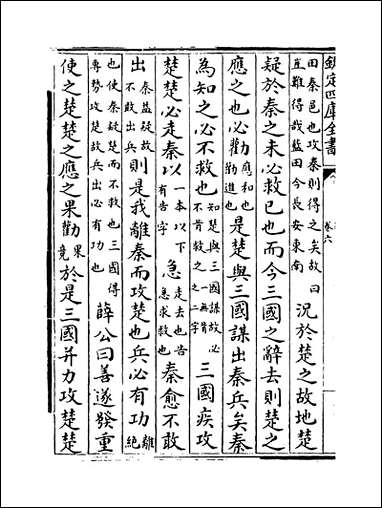 欽定四庫全書
卷六
田秦邑也攻秦則得之矣故曰豈難得哉藍田今長安東南況於楚之故地楚
疑於秦之未必救已也而今三國之辭去則楚之
應之也必勸應和也勸進也是楚與三國謀出秦兵矣秦
為知之必不救也知楚與三國謀故必不肯救之一無肯之二字三國疾攻
楚楚必走秦以一本以下有告字急走去也告急求救也秦愈不敢
出秦益疑故不敢出兵則是我離秦而攻楚也兵必有功離絕
也使秦疑楚而不救也三國得專勢攻楚故兵出必有功也薛公曰善遂發重
使之楚楚之應之果勸果竟於是三國并力攻楚楚